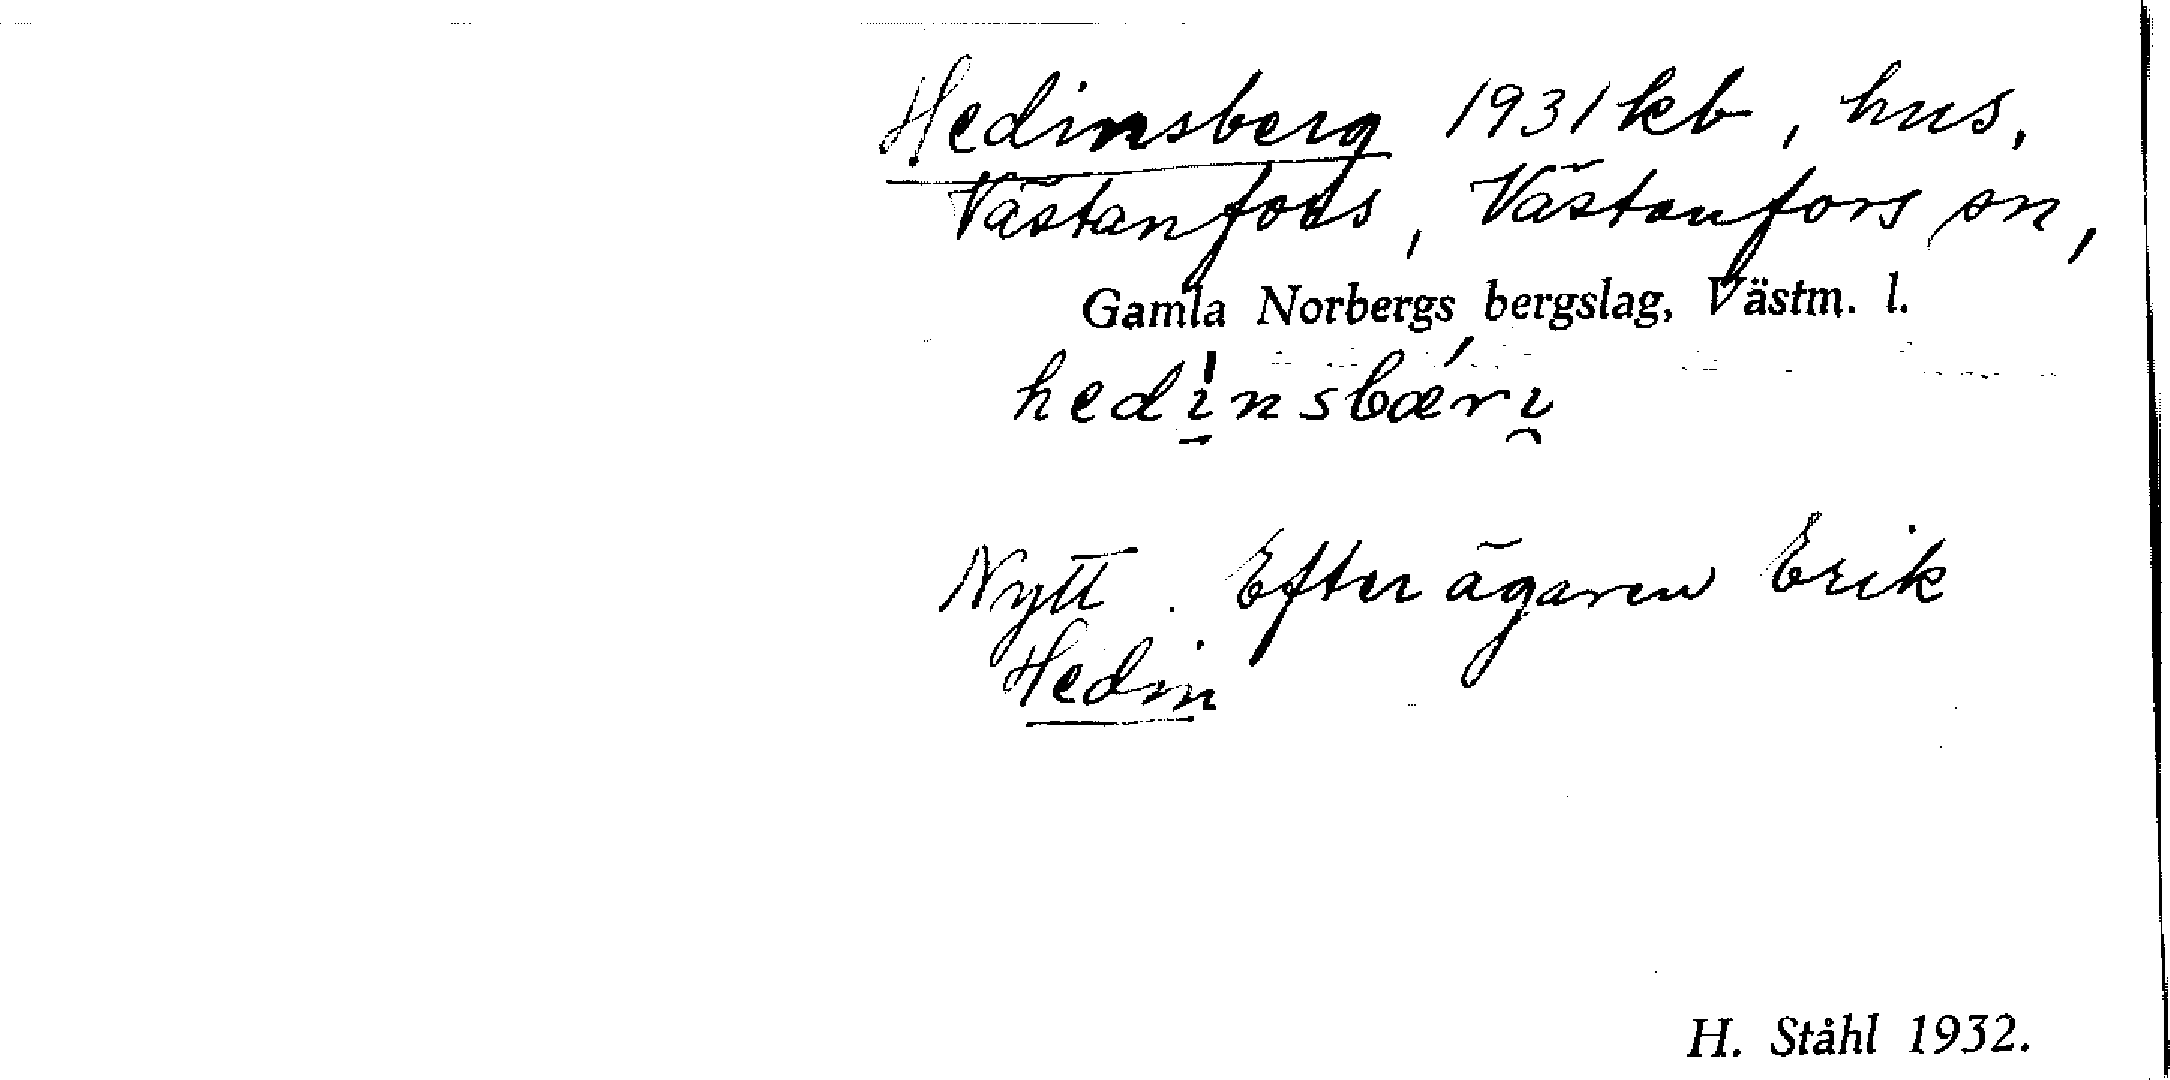 Hedinsberg 1931 kb, hus,
Västanfors, Västanfors sn,
Gamla Norbergs bergslag, Västm. l.
hedi̱nsbæri̯
Nytt. Efter ägaren Erik
Hedin
H. Ståhl 1932.